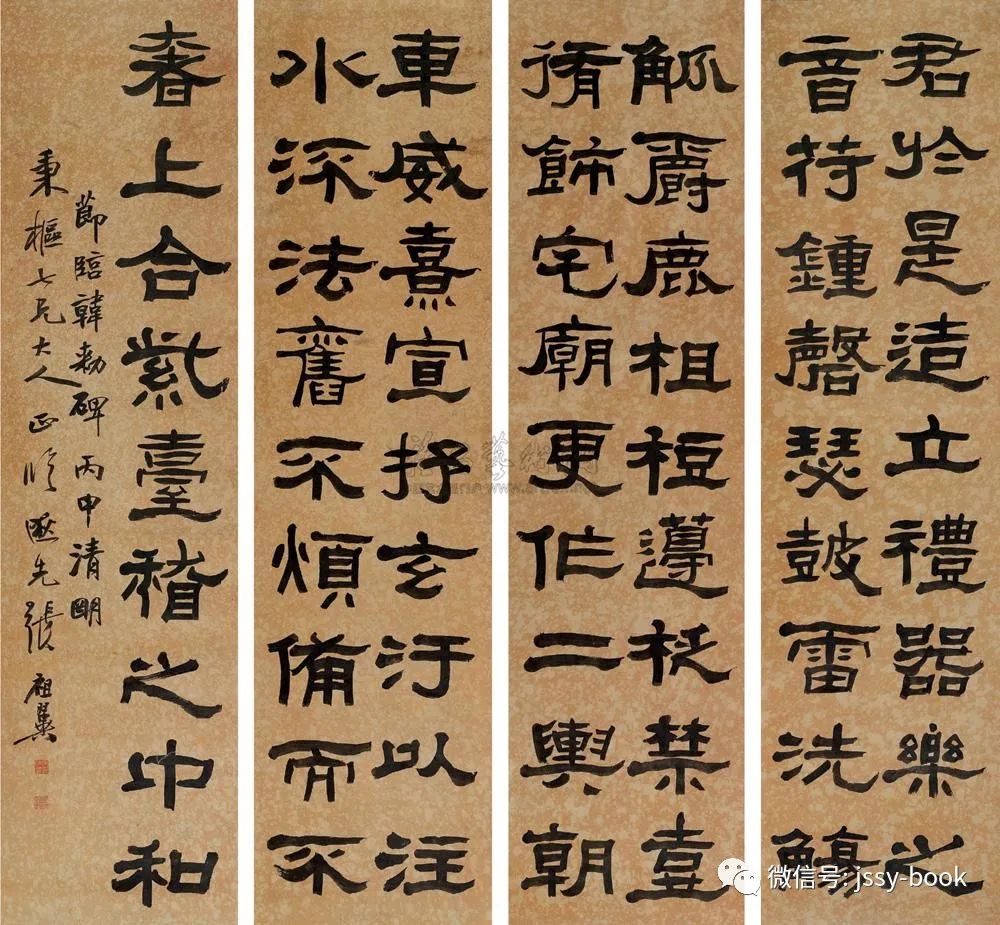 君於是造立禮器樂之
音符鍾磬瑟鼓雷洗觴
觚爵鹿柤梪籩柉禁壺
脩飾宅廟更作二輿朝
車威熹宣抒玄汙以注
水流法舊不煩備而不
奢上合紫臺稽之中和
節臨韓勅碑 丙申清明
秉樞七兄大人正 逖先張祖翼
微信号: jssy-book